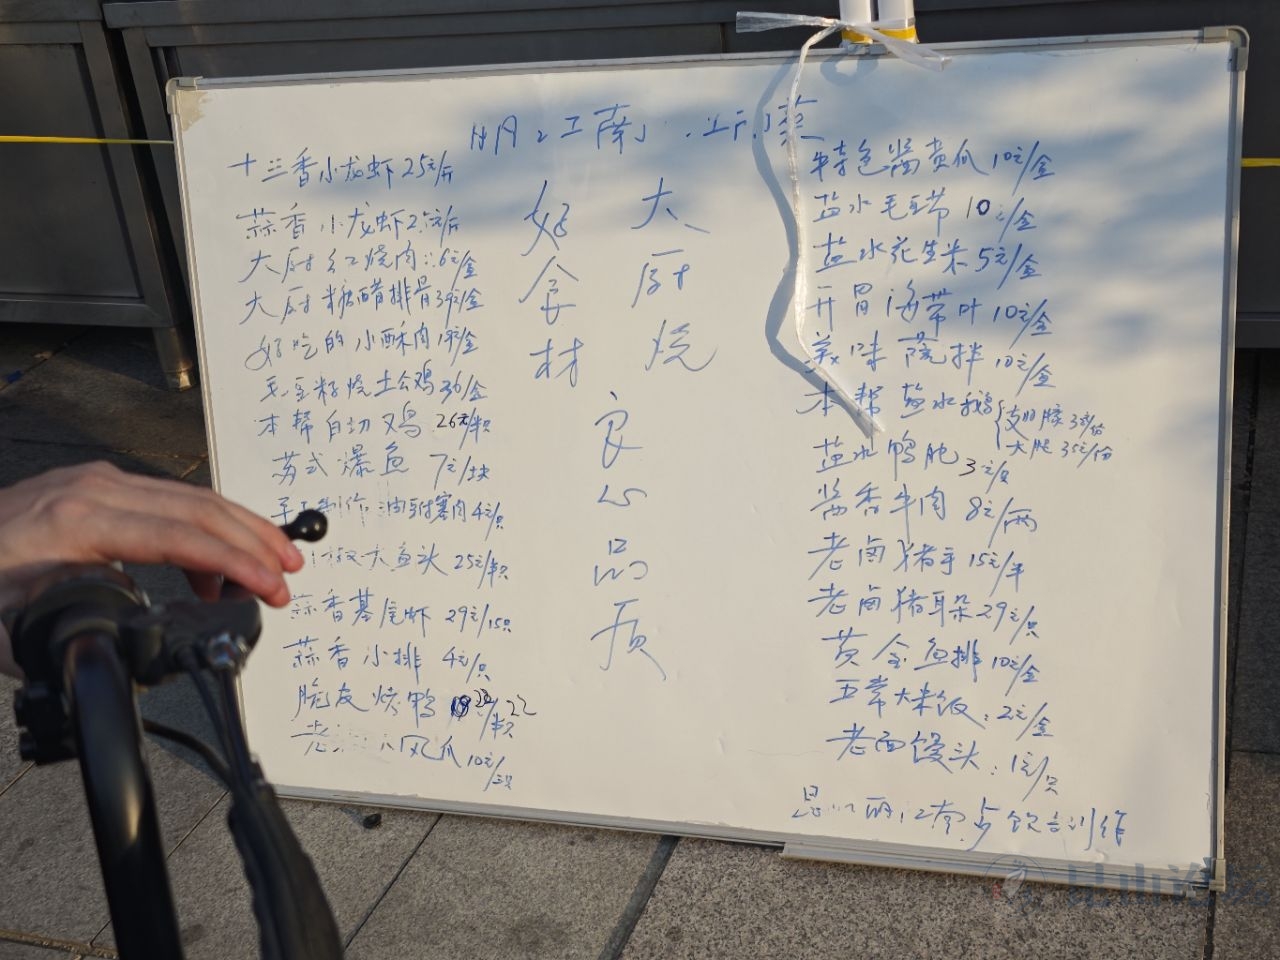 明江南
十三香小龙虾25元/斤
蒜香小龙虾25元/斤
大厨红烧肉:6元/盒
大厨糖醋排骨39元/盒
好吃的小酥肉
毛豆籽烧土公鸡36/盒
本帮白切鸡26元/半只
苏式爆鱼 7元/块
手工制作油豆腐塞肉4元/只
大鱼头25元/半只
蒜香基尾虾 29元/15只
蒜香小排 4元/只
脆皮烤鸭 22
凤爪10元/三只
大厨烧
好食材
良心品质
特色酱黄瓜10元/盒
盐水毛豆节10元/盒
盐水花生米5元/盒
开胃海带叶10元/盒
美味 拌10元/盒
本帮盐水鹅
大腿35元/份
盐水鸭肫3元/只
酱香牛肉 8元/两
老卤猪手15元/半
老卤猪耳朵29元/只
黄金鱼排10元/盒
五常大米饭:2元/盒
老面馒头:1元/只